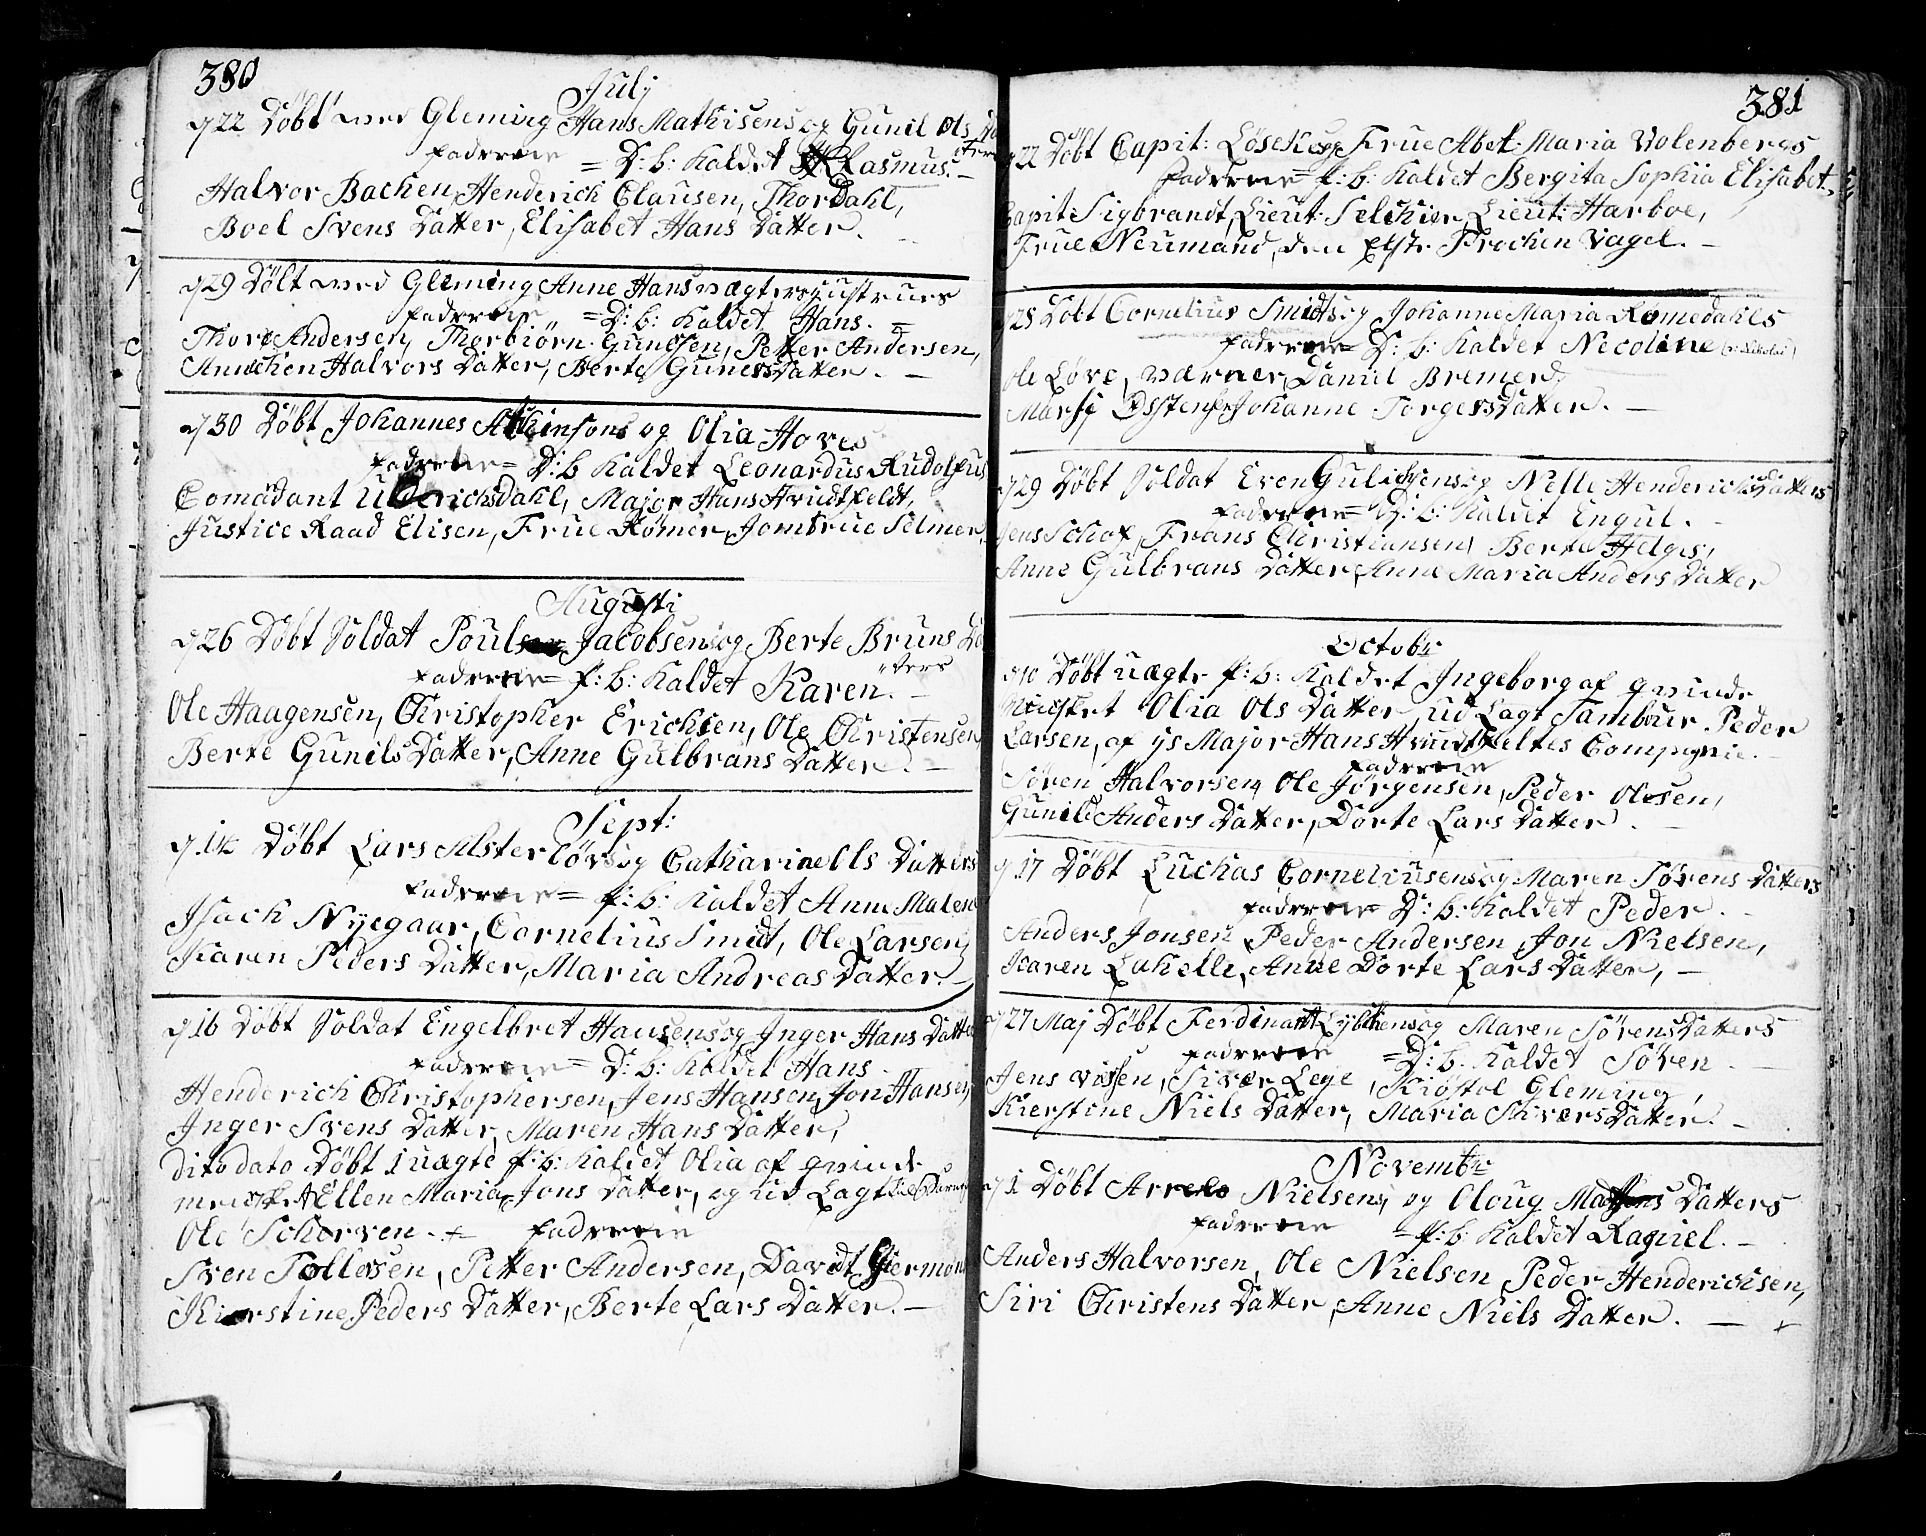 380
July
d 22 Døbt med Gleming Hans Mathisens og Gunil Ols
fadderne = D: b: Kaldet Rasmus. -
Halvor Bachen, Henderich Clausen, Thor Dahl,
Boel Svens Datter, Elisabet Hans Datter. -
d 29 Døbt med Gleming Anne Hans
fadderne = D: b: Kaldet Hans. =
Thore Andersen, Thorbiørn Gundsen, Petter Andersen,
Annechen Halvors Datter, Berte Guners Datter. -
d 30 Døbt Johannes Atkinsons og Olia Hoves
fadderne = D: b Kaldet Leonardus Rudolfus
Comādant Ulderichsdahl, Major Hans Hvidtfeldt,
Justice Raad Elisen, Frue Rømer, Jomfrue Selmer.
Augusti
d 26 Døbt Soldat Poul Jacobsens og Berte Bruns Da
ters
fadderne = f: b: Kaldet Karen. -
Ole Haagensen, Christopher Erichsen, Ole Christensen
Berte Gunils Datter, Anne Gulbrans Datter. -
Sept:
d 14 Døbt Lars Alsterløvs og Catharine Ols Datters
fadderne = f: b: Kaldet Anne Malene
Isach Nyegaar, Cornelius Smidt, Ole Larsen,
Karen Peders Datter, Maria Andreas Datter. -
d 16 Døbt Soldat Engelbret Hansens og Inger Hans Datte
fadderne = D: b: Kaldet Hans.
Henderich Christophersen, Jens Hansen, Jon Hansen,
Inger Svens Datter, Maren Hans Datter,
Dito dato Døbt 1 uægte f: b: Kaldet Olia af qvinde
mennisket Ellen Maria Jons Datter, og ud Lagt til Barnefa
Ole Schorven. fadderne
Sven Tollosen, Petter Andersen, Davidt Giermøn
Kierstine Peders Datter, Berte Lars Datter. -
381
d 22 Døbt Capit: og Frue Abel Maria Volenbergs
fadderne = f: b: Kaldet Bergita Sophia Elisabet.
Capit: Sigbrandt, Lieut: Selchier, Lieut: Harboe,
Frue Neumand, den Elste Frøchen Vagel. -
d 28 Døbt Cornelius Smidts og Johanne Maria Romedahls
fadderne = D: b: Kaldet Necoline
Ole Løve, Værner, Daniel Bremer,
Marsi Østens, Johanne Torgers Datter. -
d 29 Døbt Soldat Even Gulichsens og Nelle Henderichs Datters
fadderne = D: b: Kaldet Engul. -
Jens Schof, Frans Christiansen, Berte Helges,
Anne Gulbrans Datter, Anne Maria Anders Datter
Octobr
d 10 Døbt uægte f: b: Kaldet Ingeborg af qvinde
Mennisket Olia Ols Datter, ud Lagt Tambour Peder
Larsen, af Major Hans Hvidtfeltes Compagnie. -
fadderne
Søren Halvorsen, Ole Jørgensen, Peder Olesen,
Gunild Anders Datter, Dorte Lars Datter. -
d 17 Døbt Luchas Corneliusens og Maren Sørens Datters
fadderne = D: b: Kaldet Peder. -
Anders Jonsen, Peder Andersen, Jon Nielsen,
Karen Lakelle, Anne Dorte Lars Datter, -
d 27 Maj Døbt Ferdinant og Maren Sørens Datters
fadderne = D: b: Kaldet Søren. -
Jens, Siver Lege, Kiøstol Gleming,
Kierstine Niels Datter, Maria Siværs Datter. -
Novembr
d 1 Døbt Nielsens, og Oloug Datters
fadderne = f: b: Kaldet Ragnel. -
Anders Halvorsen, Ole Nielsen, Peder Henderichsen,
Siri Christens Datter, Anne Niels Datter. -